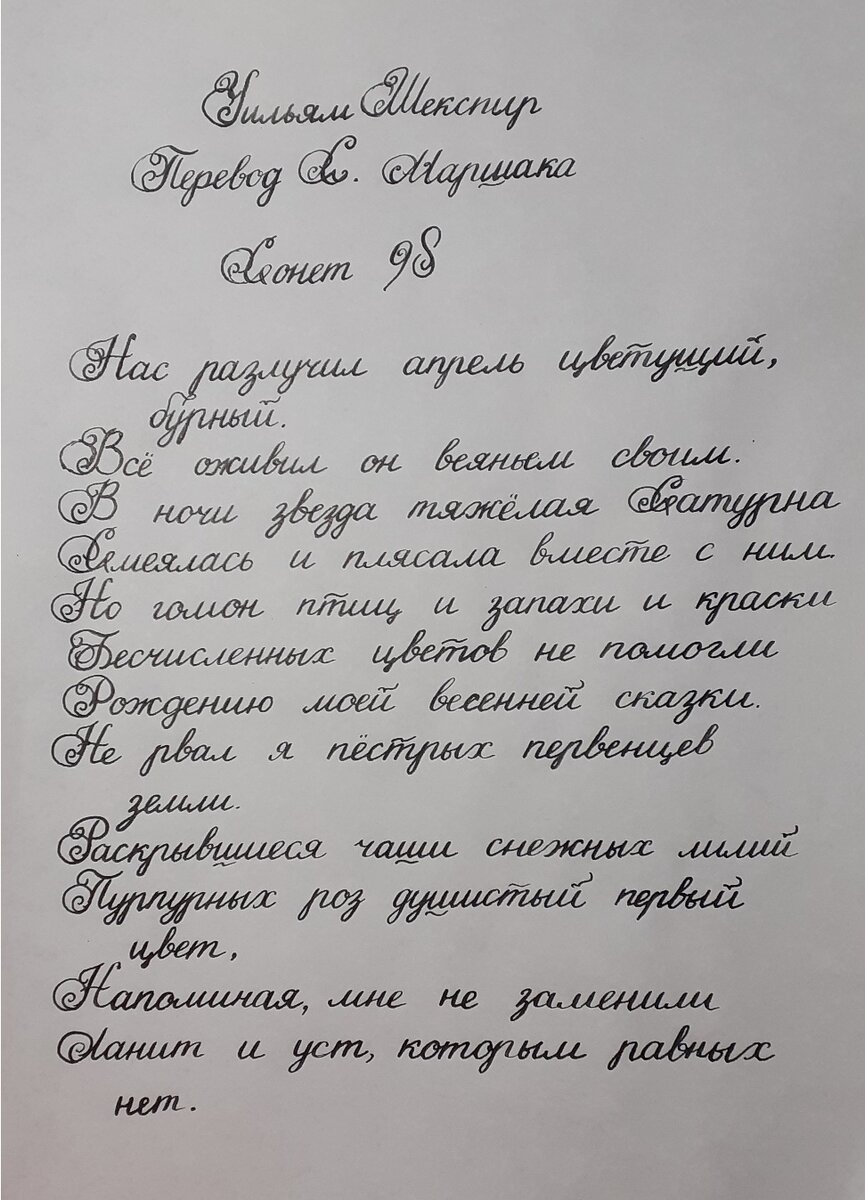 Уильям Шекспир
Перевод С. Маршака
Сонет 98
Нас разлучил апрель цветущий,
бурный.
Всё оживил он веяньем своим.
В ночи звезда тяжёлая Сатурна
Смеялась и плясала вместе с ним.
Но гомон птиц и запахи и краски
Бесчисленных цветов не помогли
Рождению моей весенней сказки.
Не рвал я пёстрых первенцев
земли.
Раскрывшиеся чаши снежных лилий
Пурпурных роз душистый первый
цвет,
Напоминая, мне не заменили
Ланит и уст, которым равных
нет.